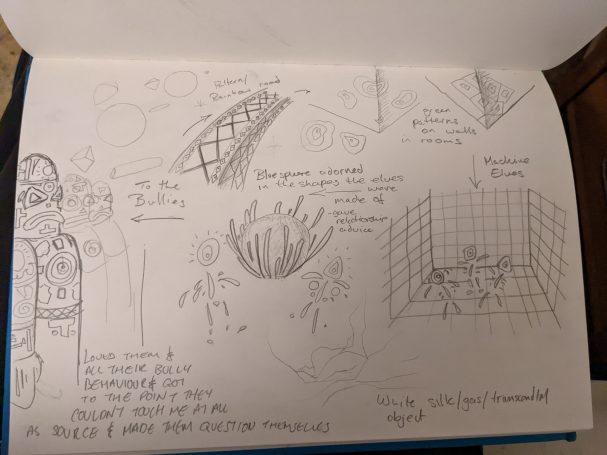 Pattern/
Rainbow road
green
patterns
on walls
in rooms
Machine
Elves
To the
Bullies
Blue sphere adorned
in the shapes the elves
were
made of
- gave
relationship
advice
LOVED THEM &
ALL THEIR BULLY
BEHAVIOUR & GOT
TO THE POINT THEY
COULDN'T TOUCH ME AT ALL
AS SOURCE & MADE THEM QUESTION THEMSELVES
White silk/gas/
object